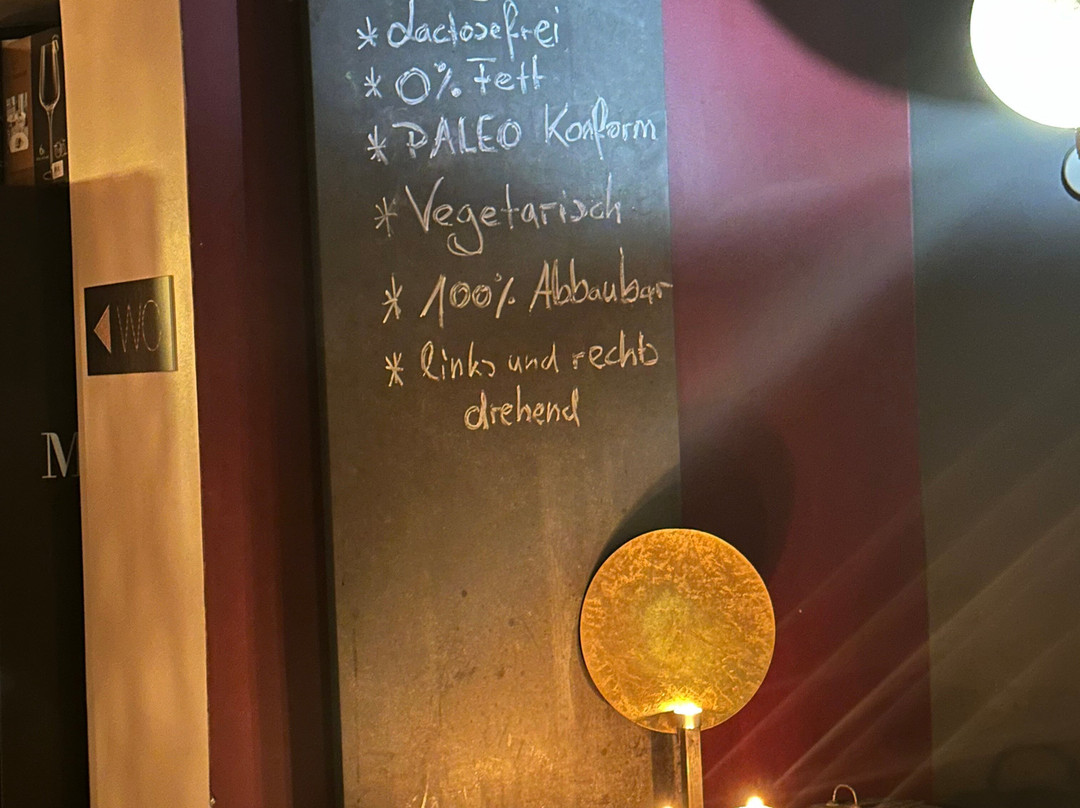 * Lactosefrei
* 0% Fett
* PALEO Konform
* Vegetarisch
* 100% Abbaubar
* links und rechts
drehend
WO
M